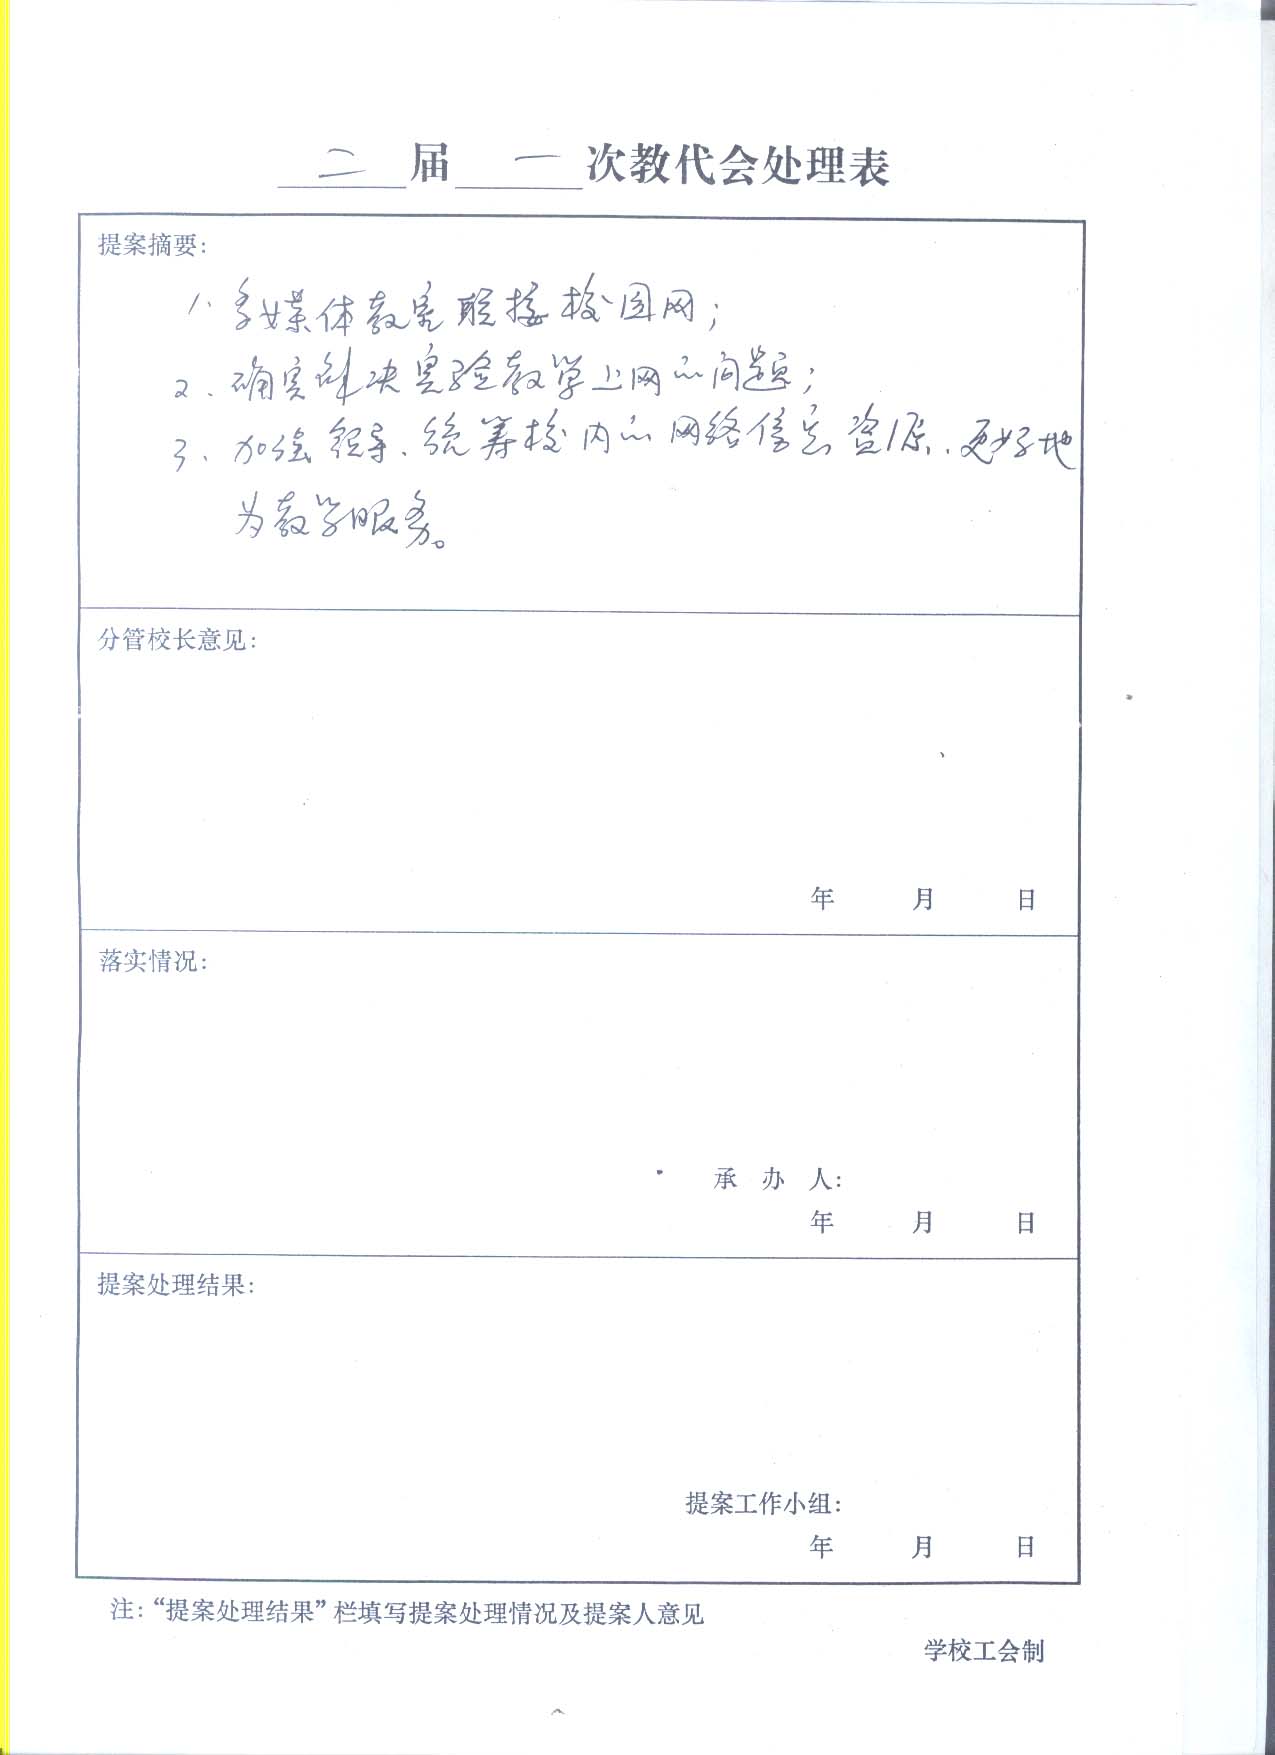 二 届 一 次教代会处理表
提案摘要:
1、多媒体教室联接校园网;
2、确实解决实验教学上网的问题;
3、加强领导、统筹校内的网络信息资源、更好地
为教学服务。
分管校长意见:
年 月 日
落实情况:
承 办 人:
年 月 日
提案处理结果:
提案工作小组:
年 月 日
注:“提案处理结果”栏填写提案处理情况及提案人意见
学校工会制